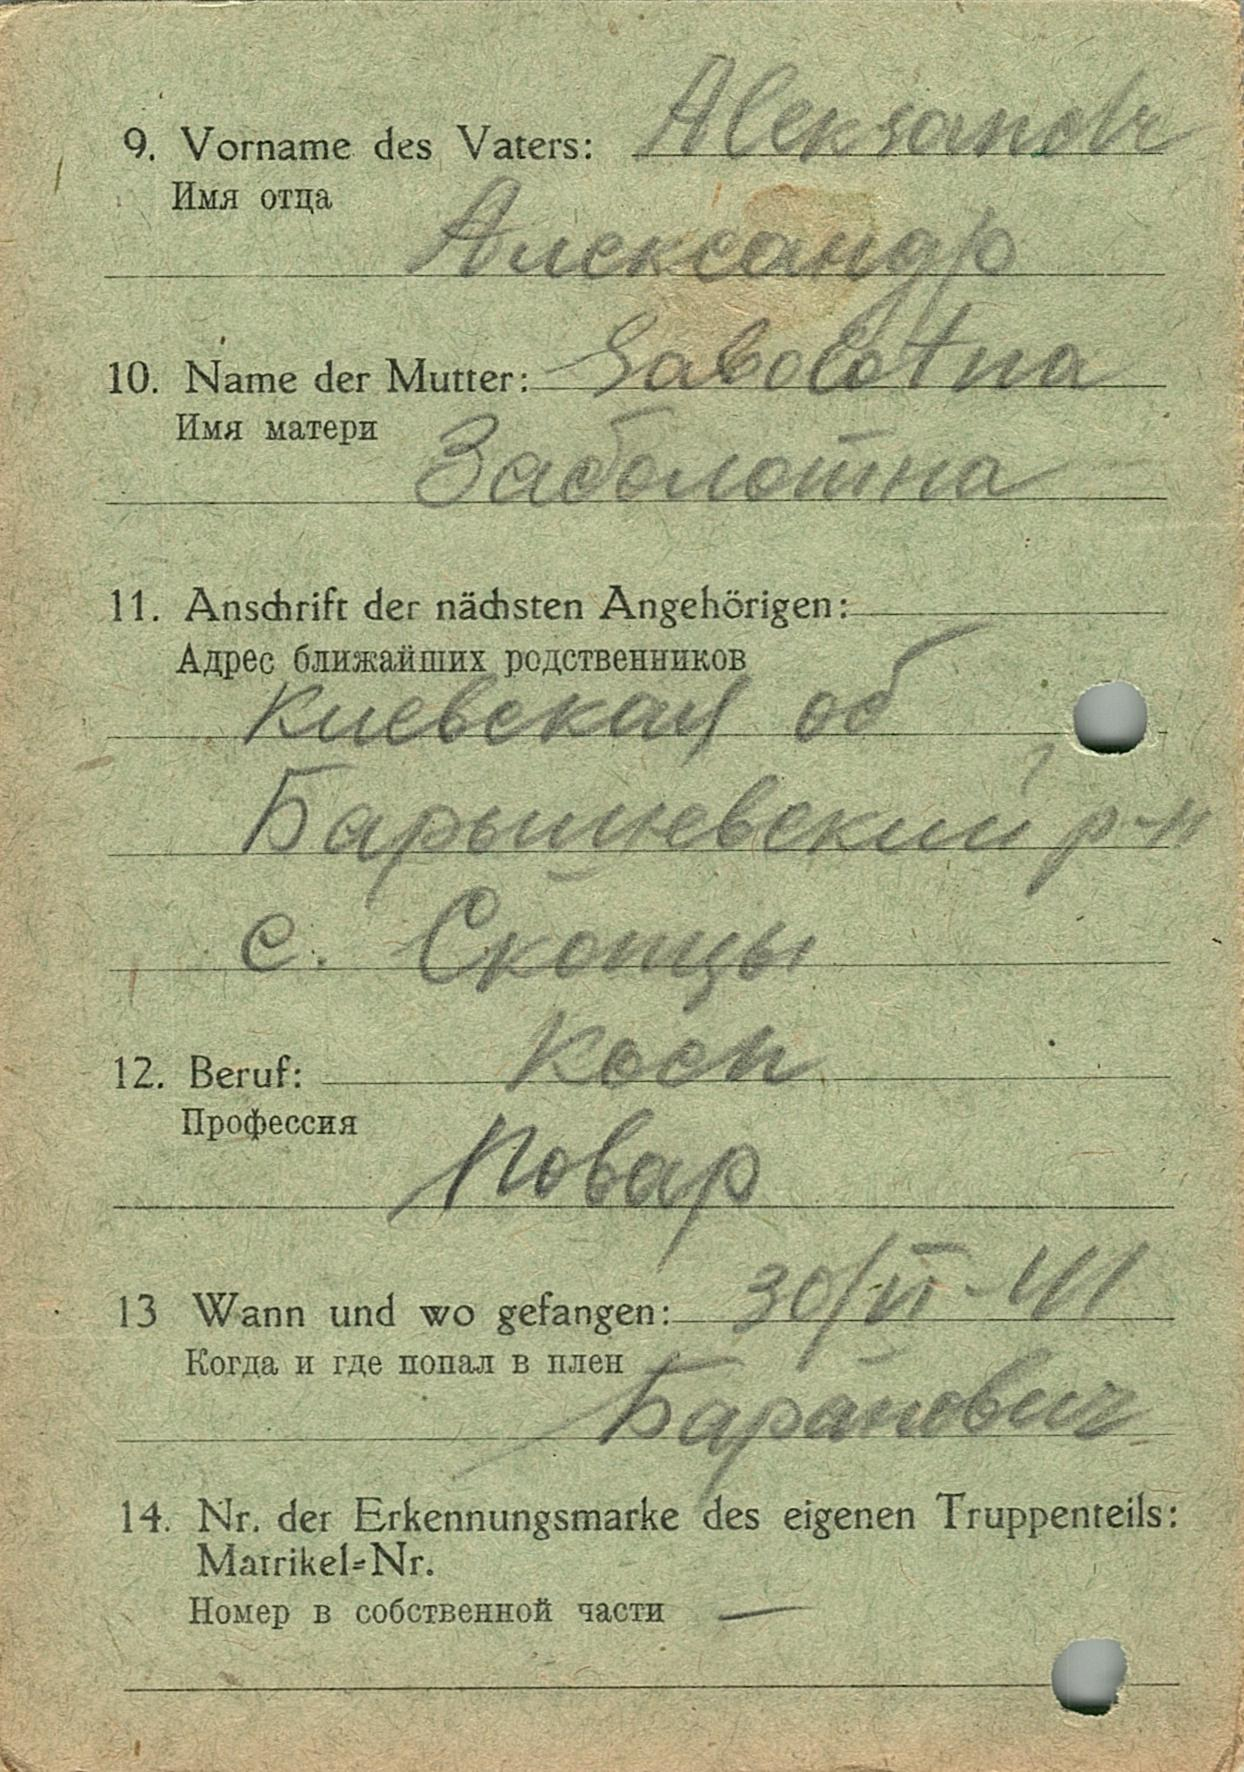 9. Vorname des Vaters: Aleksandr
Имя отца
Александр
10. Name der Mutter: Sabolotna
Имя матери
Заболотна
11. Anschrift der nächsten Angehörigen:
Адрес ближайших родственников
Киевская об
Барышевский р-н
с. Скопцы
12. Beruf: Koch
Профессия
Повар
13 Wann und wo gefangen: 30/VI-41
Когда и где попал в плен
Баранович
14. Nr. der Erkennungsmarke des eigenen Truppenteils:
Matrikel-Nr.
Номер в собственной части —